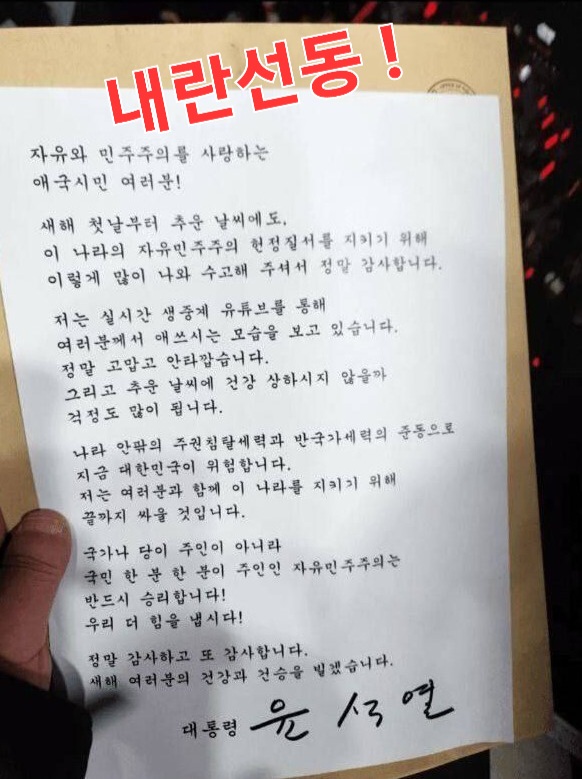 내란선동!
자유와 민주주의를 사랑하는
애국시민 여러분!
새해 첫날부터 추운 날씨에도,
이 나라의 자유민주주의 헌정질서를 지키기 위해
이렇게 많이 나와 수고해 주셔서 정말 감사합니다.
저는 실시간 생중계 유튜브를 통해
여러분께서 애쓰시는 모습을 보고 있습니다.
정말 고맙고 안타깝습니다.
그리고 추운 날씨에 건강 상하시지 않을까
걱정도 많이 됩니다.
나라 안팎의 주권침탈세력과 반국가세력의 준동으로
지금 대한민국이 위험합니다.
저는 여러분과 함께 이 나라를 지키기 위해
끝까지 싸울 것입니다.
국가나 당이 주인이 아니라
국민 한 분 한 분이 주인인 자유민주주의는
반드시 승리합니다!
우리 더 힘을 냅시다!
정말 감사하고 또 감사합니다.
새해 여러분의 건강과 건승을 빌겠습니다.
대통령 윤석열